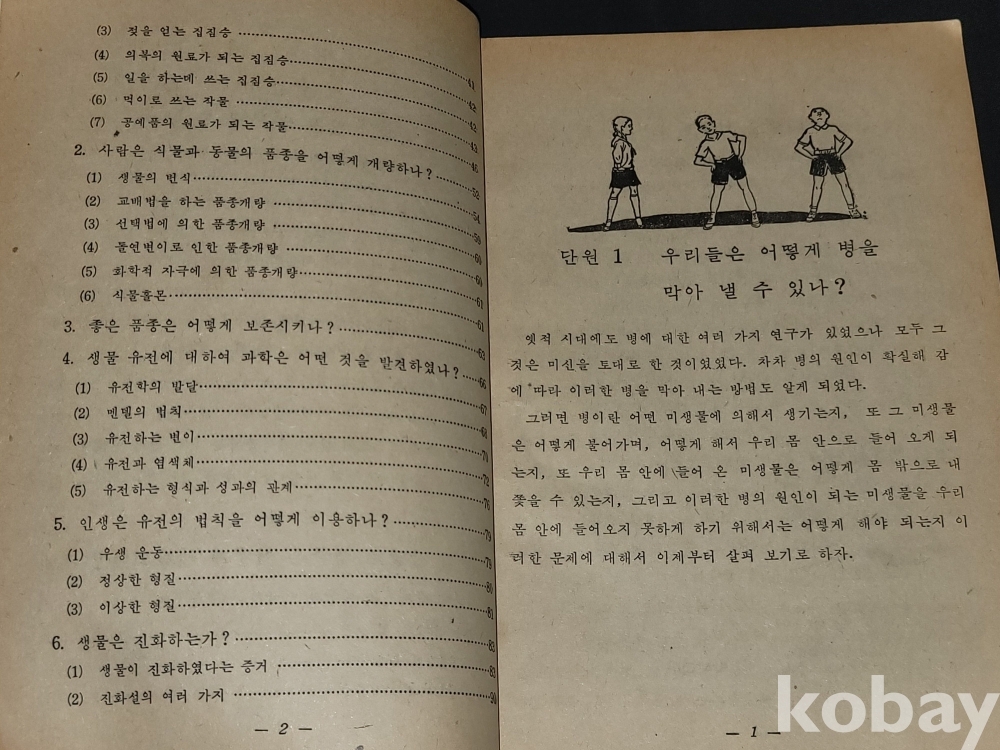 (3) 젖을 얻는 집짐승 ⋯⋯ 41
(4) 의복의 원료가 되는 집짐승 ⋯⋯ 42
(5) 일을 하는데 쓰는 집짐승 ⋯⋯ 43
(6) 먹이로 쓰는 작물 ⋯⋯ 43
(7) 공예품의 원료가 되는 작물 ⋯⋯ 46
2. 사람은 식물과 동물의 품종을 어떻게 개량하나? ⋯⋯ 53
(1) 생물의 번식 ⋯⋯ 54
(2) 교배법을 하는 품종개량 ⋯⋯ 59
(3) 선택법에 의한 품종개량 ⋯⋯ 60
(4) 돌연변이로 인한 품종개량 ⋯⋯ 60
(5) 화학적 자극에 의한 품종개량 ⋯⋯ 61
(6) 식물홀몬 ⋯⋯ 61
3. 좋은 품종은 어떻게 보존시키나? ⋯⋯ 63
4. 생물 유전에 대하여 과학은 어떤 것을 발견하였나? ⋯⋯ 66
(1) 유전학의 발달 ⋯⋯ 67
(2) 멘델의 법칙 ⋯⋯ 68
(3) 유전하는 변이 ⋯⋯ 70
(4) 유전과 염색체 ⋯⋯ 72
(5) 유전하는 형식과 성과의 관계 ⋯⋯ 76
5. 인생은 유전의 법칙을 어떻게 이용하나? ⋯⋯ 79
(1) 우생 운동 ⋯⋯ 79
(2) 정상한 형질 ⋯⋯ 80
(3) 이상한 형질 ⋯⋯ 81
6. 생물은 진화하는가? ⋯⋯ 83
(1) 생물이 진화하였다는 증거 ⋯⋯ 83
(2) 진화설의 여러 가지 ⋯⋯ 90
— 2 —
단원 1 우리들은 어떻게 병을
막아 낼 수 있나?
옛적 시대에도 병에 대한 여러 가지 연구가 있었으나 모두 그
것은 미신을 토대로 한 것이었었다. 차차 병의 원인이 확실해 감
에 따라 이러한 병을 막아 내는 방법도 알게 되었다.
그러면 병이란 어떤 미생물에 의해서 생기는지, 또 그 미생물
은 어떻게 불어가며, 어떻게 해서 우리 몸 안으로 들어 오게 되
는지, 또 우리 몸 안에 들어 온 미생물은 어떻게 몸 밖으로 내
쫓을 수 있는지, 그리고 이러한 병의 원인이 되는 미생물을 우리
몸 안에 들어오지 못하게 하기 위해서는 어떻게 해야 되는지 이
러한 문제에 대해서 이제부터 살펴 보기로 하자.
— 1 —
kobay